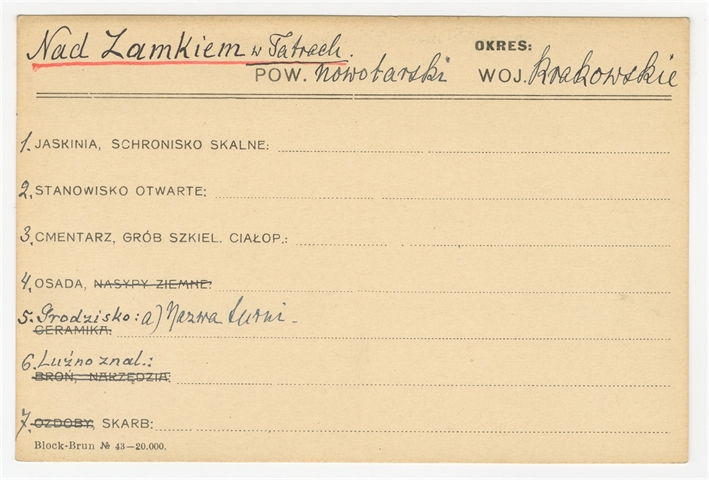 Nad Zamkiem w Tatrach.
OKRES:
POW. nowotarski WOJ. krakowskie
1. JASKINIA, SCHRONISKO SKALNE:
2. STANOWISKO OTWARTE:
3. CMENTARZ, GRÓB SZKIEL. CIAŁOP.:
4. OSADA, NASYPY ZIEMNE:
5. Grodzisko: a) Nazwa turni -
CERAMIKA:
6. Luźno znal.:
BROŃ, NARZĘDZIA:
7. OZDOBY, SKARB:
Block-Brun № 43—20.000.